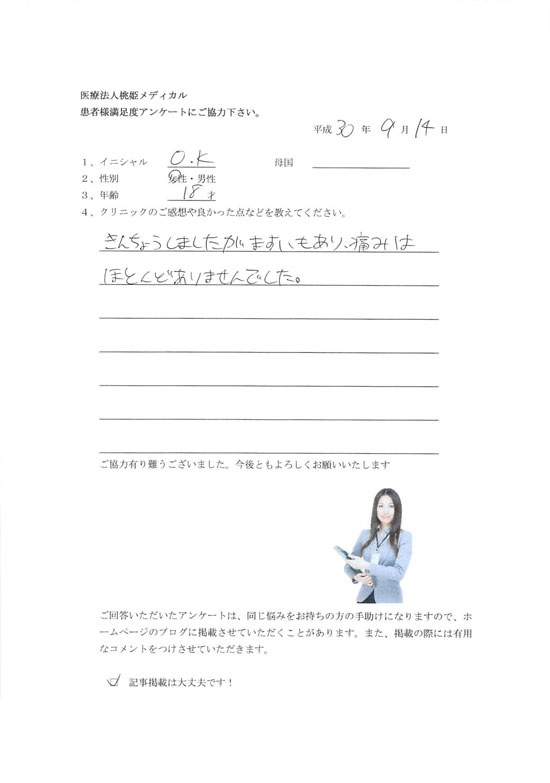 医療法人桃姫メディカル
患者様満足度アンケートにご協力下さい。
平成 30 年 9 月 14 日
1、イニシャル O.K 母国
2、性別 女性・男性
3、年齢 18 才
4、クリニックのご感想や良かった点などを教えてください。
きんちょうしましたがますいもあり、痛みは
ほとんどありませんでした。
ご協力有り難うございました。今後ともよろしくお願いいたします
ご回答いただいたアンケートは、同じ悩みをお持ちの方の手助けになりますので、ホ
ームページのブログに掲載させていただくことがあります。また、掲載の際には有用
なコメントをつけさせていただきます。
記事掲載は大丈夫です！